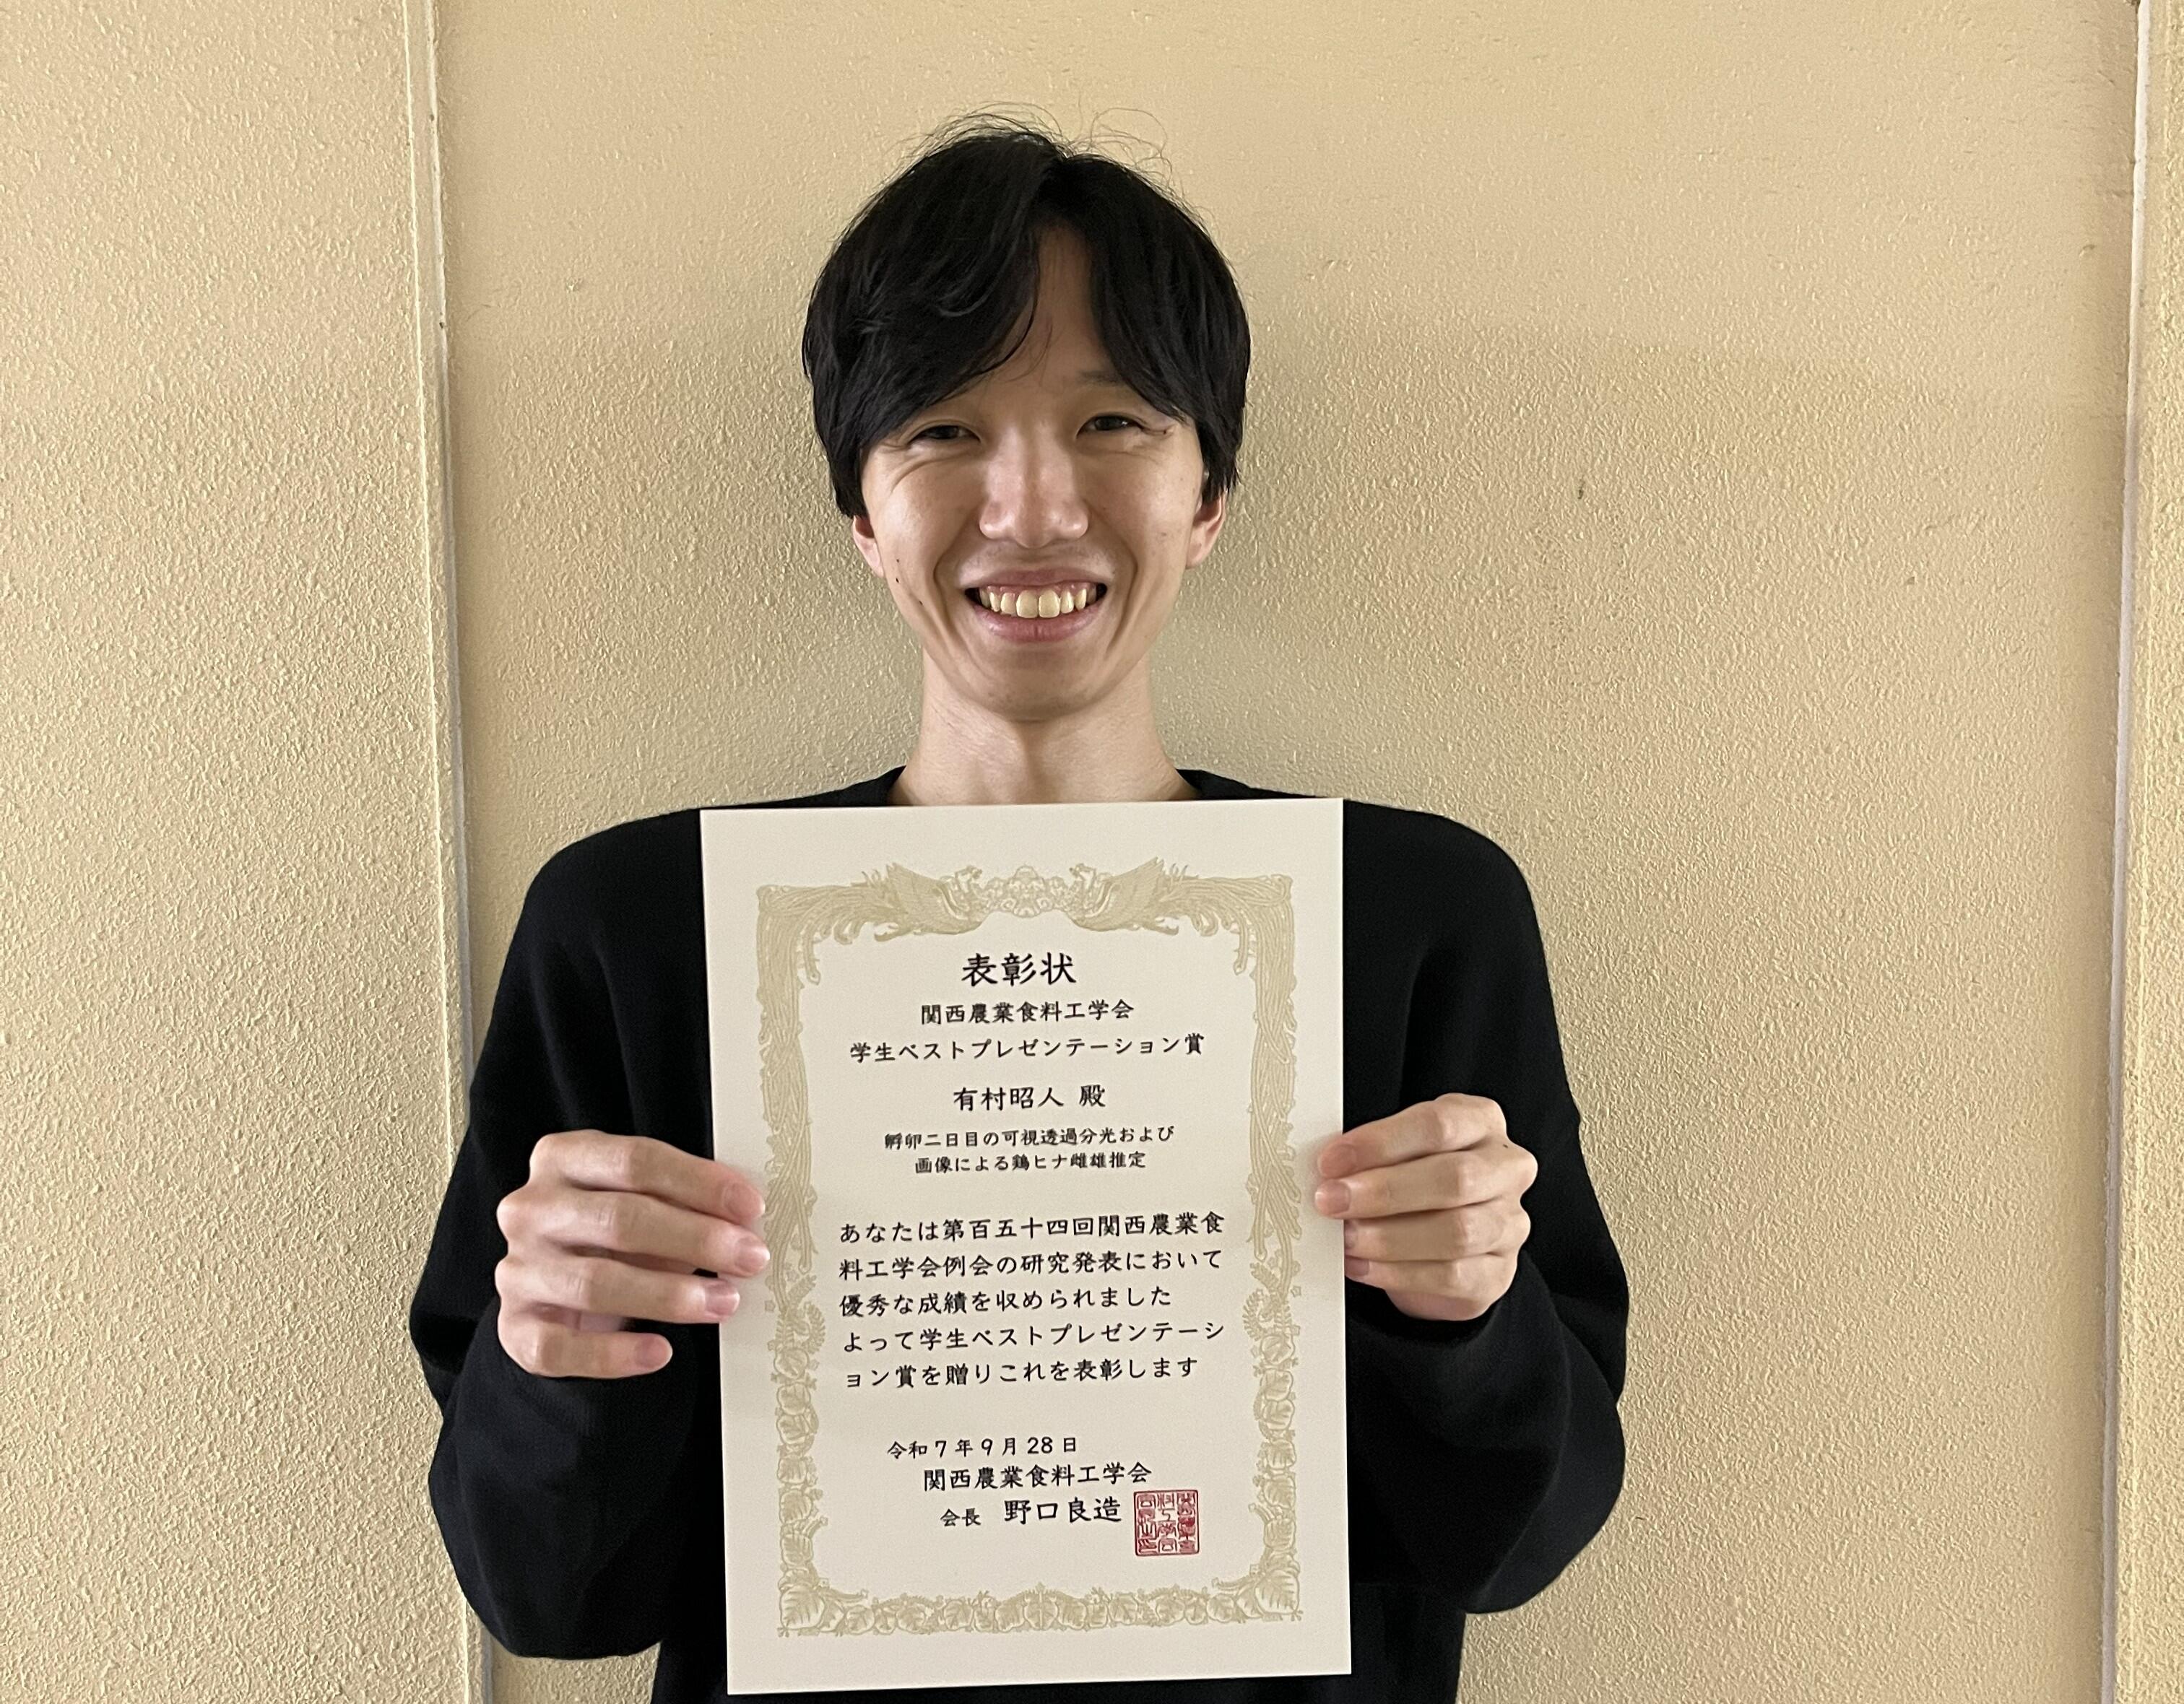 表彰状
関西農業食料工学会
学生ベストプレゼンテーション賞
有村昭人 殿
孵卵二日目の可視透過分光および
画像による鶏ヒナ雌雄推定
あなたは第百五十四回関西農業食
料工学会例会の研究発表において
優秀な成績を収められました
よって学生ベストプレゼンテーシ
ョン賞を贈りこれを表彰します
令和7年9月28日
関西農業食料工学会
会長 野口良造